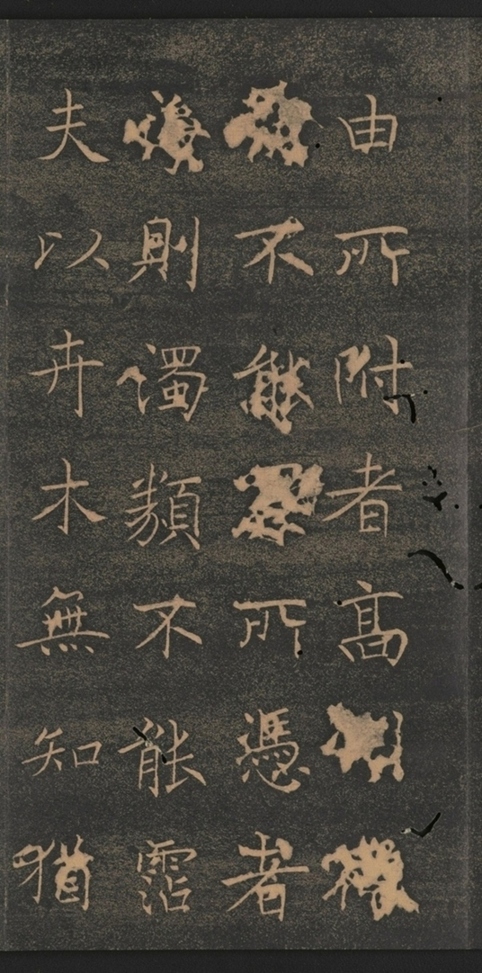 由所附者高
不能所憑者
則濁類不能霑
夫以卉木無知猶